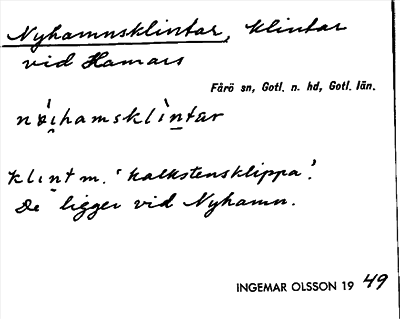 Nyhamnsklintar, klintar
vid Hamars
Fårö sn, Gotl. n. hd, Gotl. län.
klint m. 'kalkstensklippa'.
De ligger vid Nyhamn.
INGEMAR OLSSON 19 49